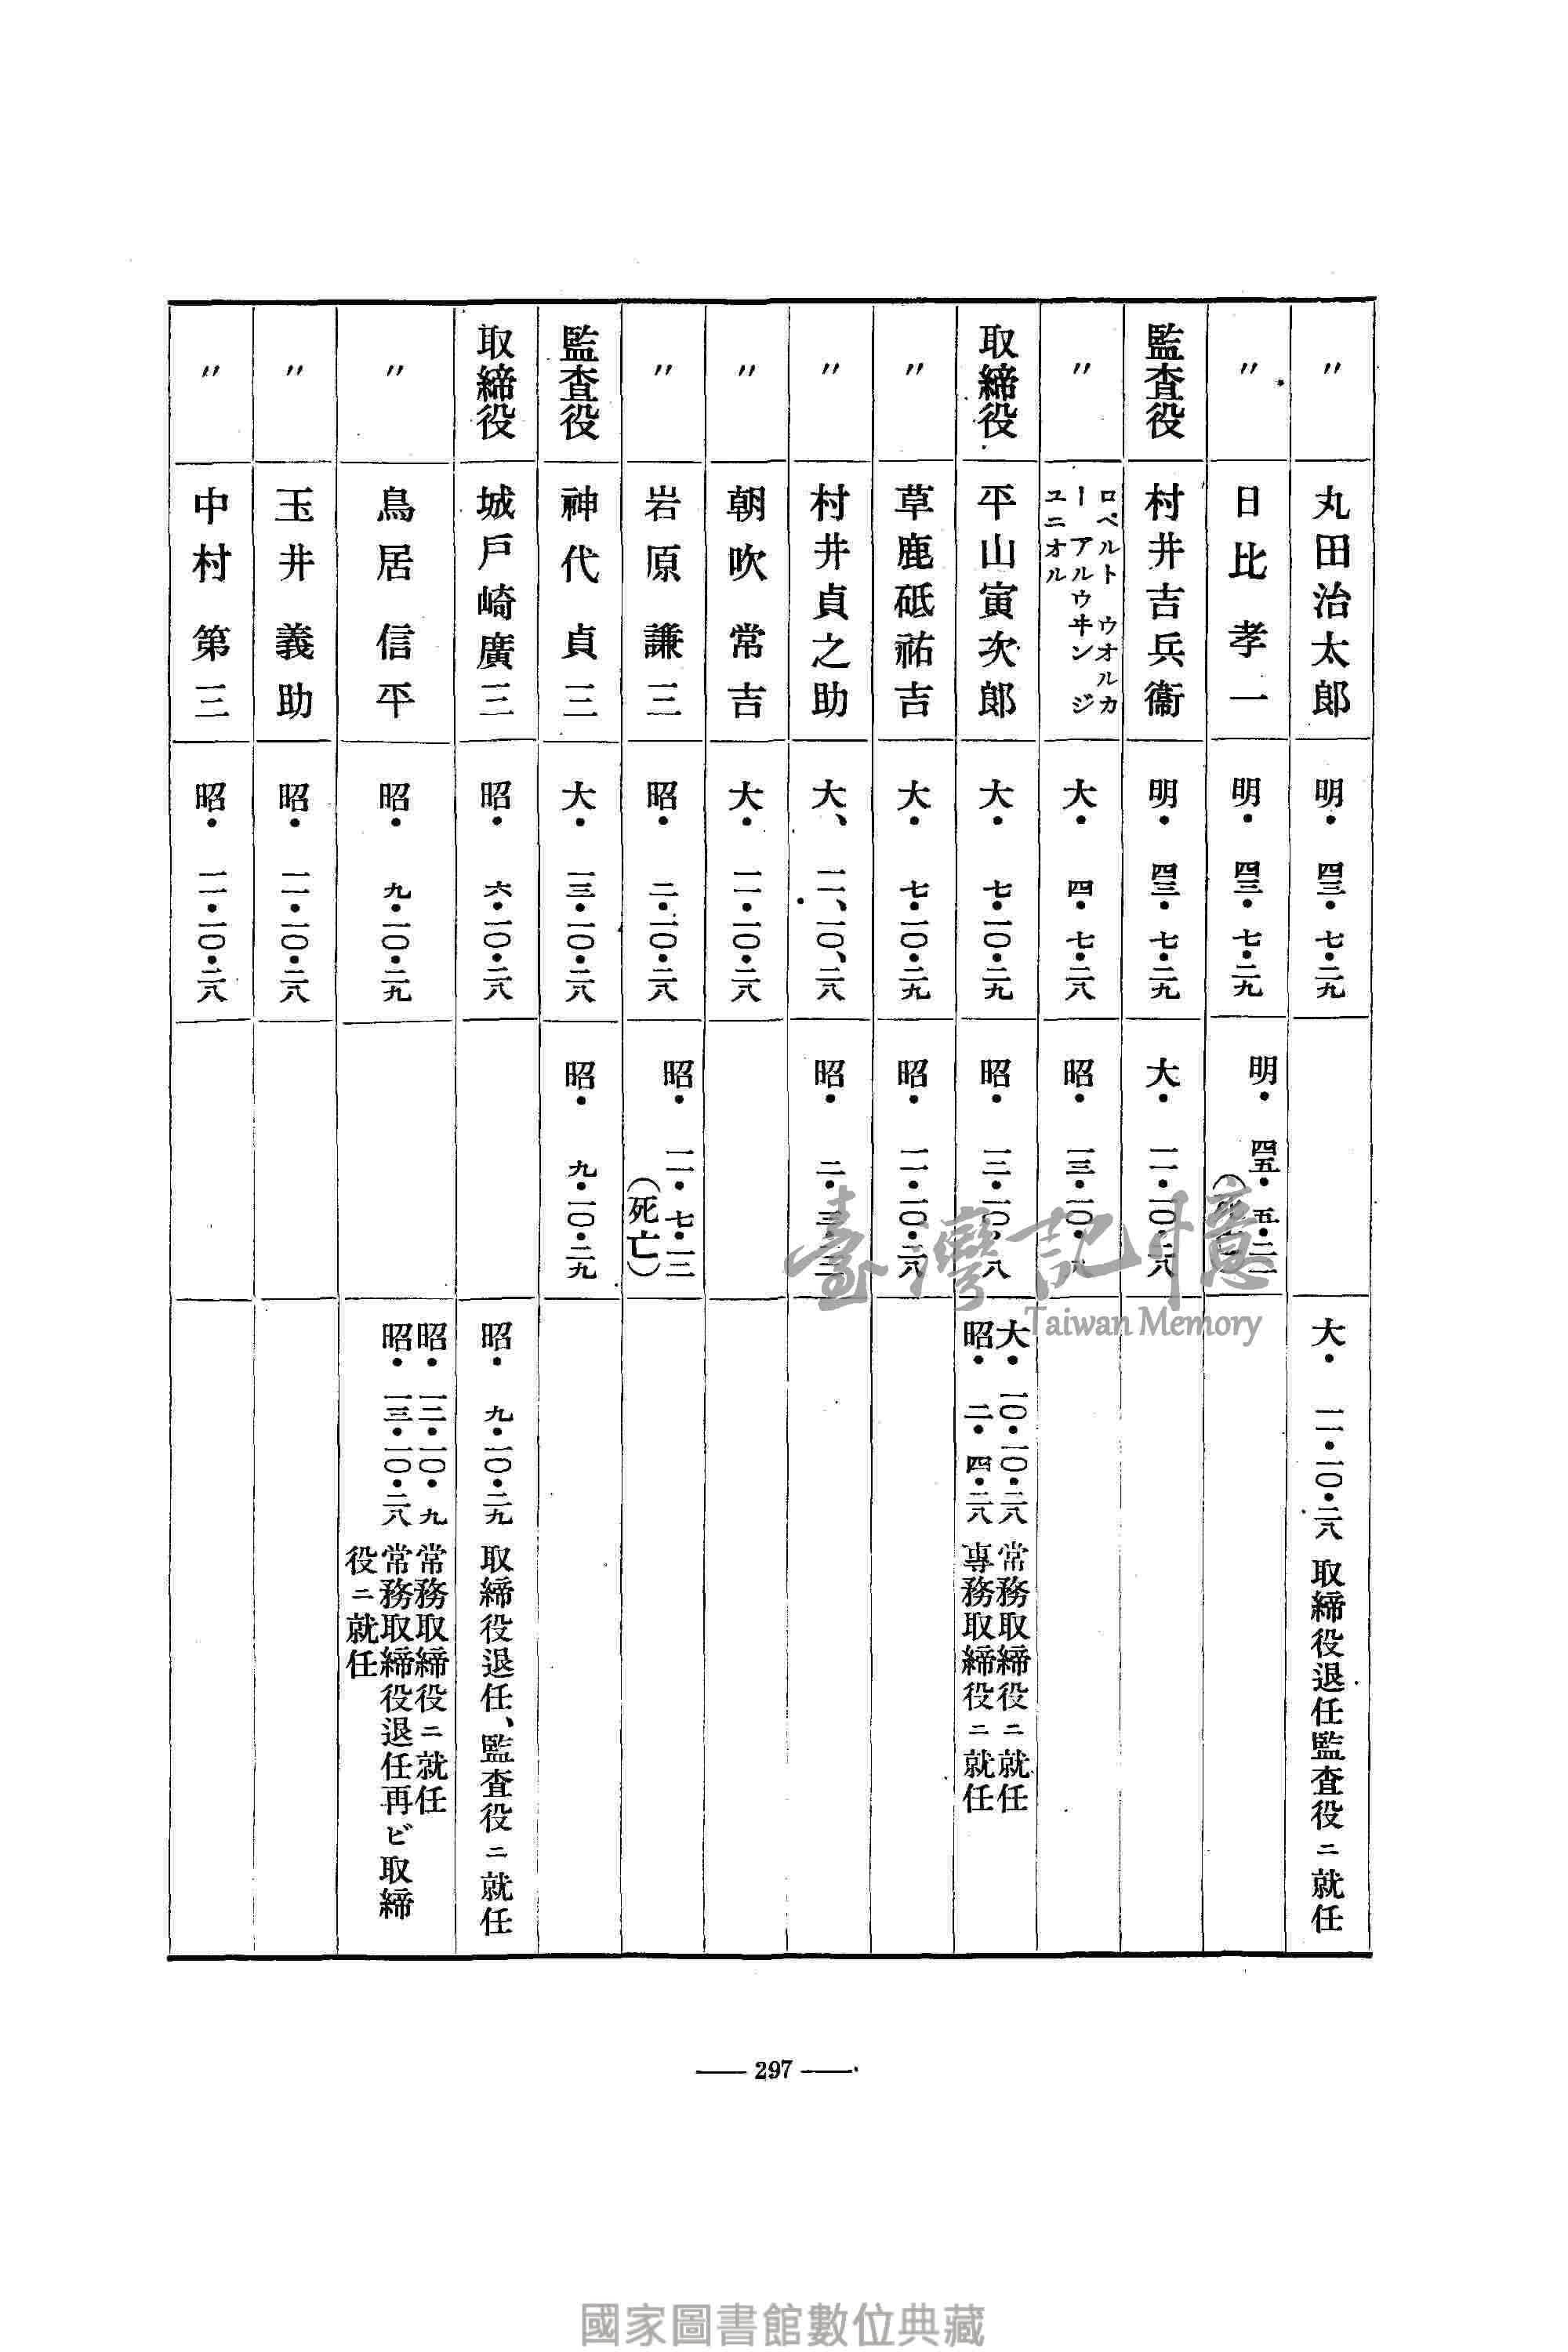 〃 丸田治太郎 明・四三・七・二九 大・一一・一〇・二八 取締役退任監査役ニ就任
〃 日比孝一 明・四三・七・二九 明・四五・五・二二
監査役 村井吉兵衞 明・四三・七・二九 大・一一・一〇・二八
〃 ロベルト ウオルカー アルウヰン ジユニオル 大・四・七・二八 昭・一三・一〇・
取締役 平山寅次郎 大・七・一〇・二九 昭・一三・一〇・八 大・一〇・一〇・二八 常務取締役ニ就任
昭・二・四・二八 專務取締役ニ就任
〃 草鹿砥祐吉 大・七・一〇・二九 昭・一一・一〇・二八
〃 村井貞之助 大、一一、一〇、二八 昭・二・三・
〃 朝吹常吉 大・一一・一〇・二八
〃 岩原謙三 昭・二・一〇・二八 昭・一一・七・一二
（死亡）
監査役 神代貞三 大・一三・一〇・二八 昭・九・一〇・二九
取締役 城戸崎廣三 昭・六・一〇・二八 昭・九・一〇・二九 取締役退任、監査役ニ就任
〃 鳥居信平 昭・九・一〇・二九 昭・一二・一〇・九 常務取締役ニ就任
昭・一三・一〇・二八 常務取締役退任再ビ取締
役ニ就任
〃 玉井義助 昭・一一・一〇・二八
〃 中村第三 昭・一一・一〇・二八
臺灣記憶
Taiwan Memory
297
國家圖書館數位典藏